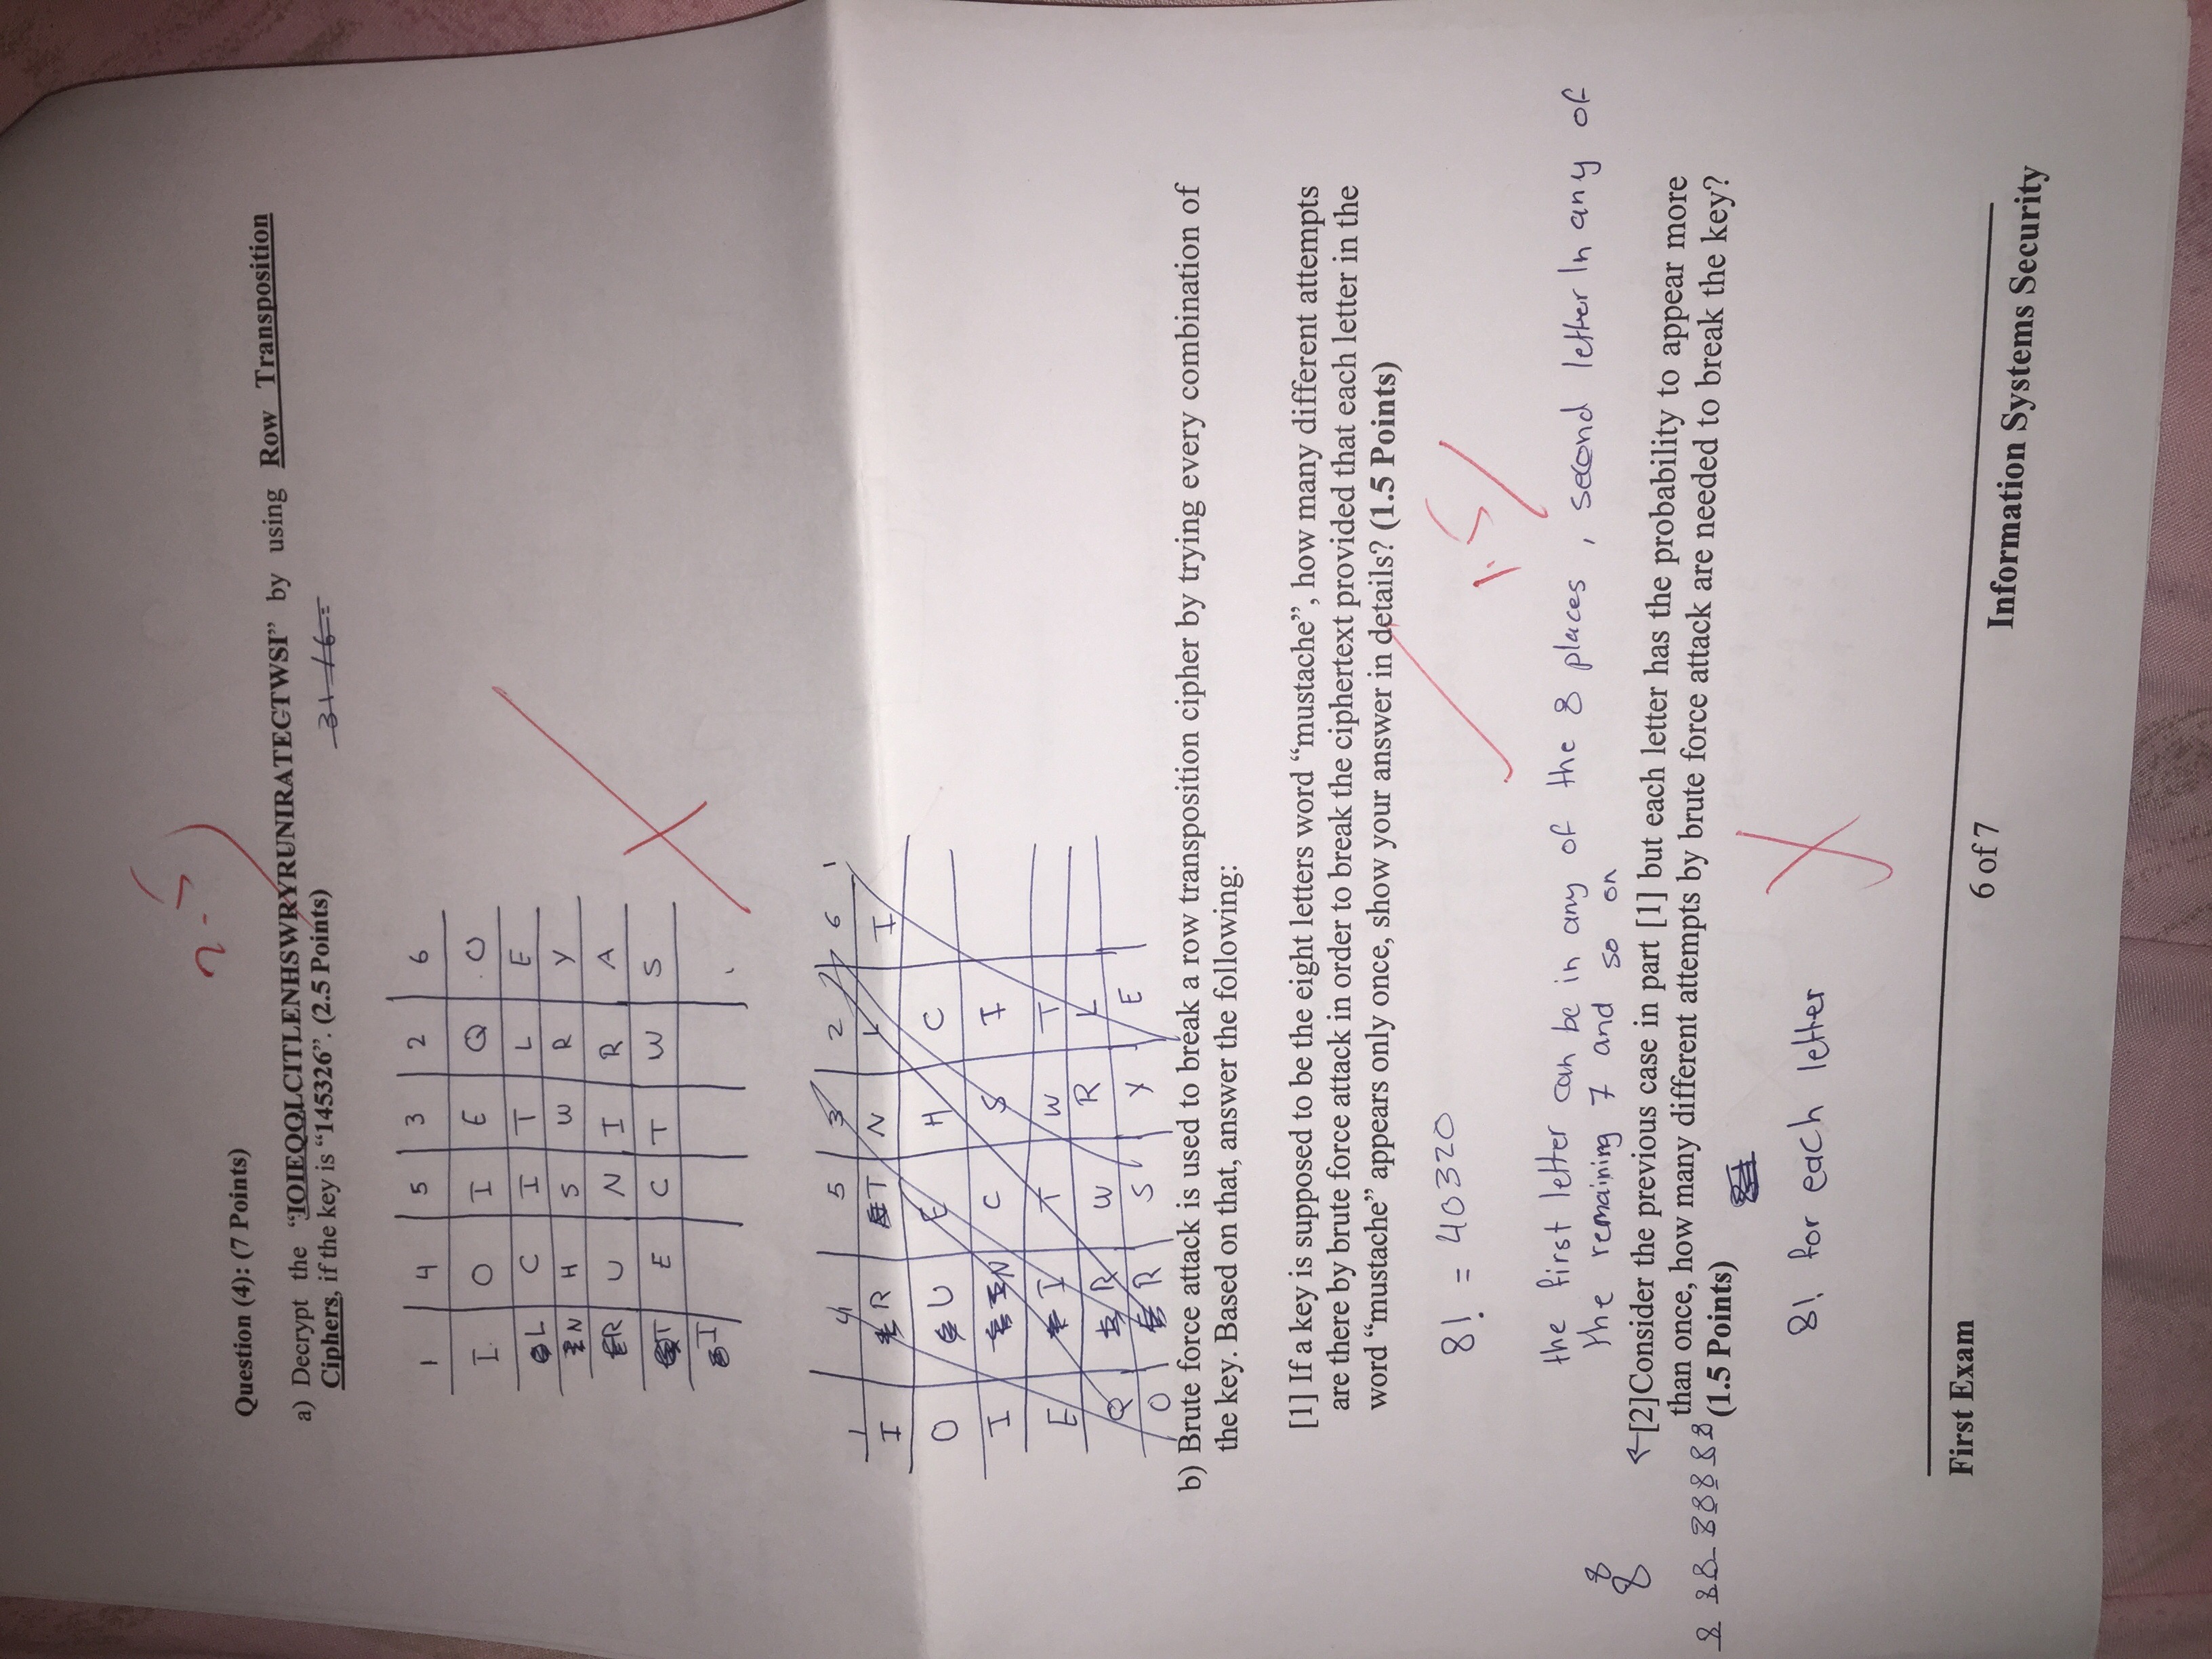 2.5
Question (4): (7 Points)
a) Decrypt the “IOIEQOLCITLENHSWRYRUNIRATECTWSI” by using Row Transposition
Ciphers, if the key is “145326”. (2.5 Points)
31/6=
1 4 5 3 2 6
I O I E Q O
L C I T L E
N H S W R Y
R U N I R A
T E C T W S
I
1 4 5 3 2 6 1
I R T N L I
O U E H C
I N C S I
E I T W T
Q R W R L
O R S Y E
b) Brute force attack is used to break a row transposition cipher by trying every combination of
the key. Based on that, answer the following:
[1] If a key is supposed to be the eight letters word “mustache”, how many different attempts
are there by brute force attack in order to break the ciphertext provided that each letter in the
word “mustache” appears only once, show your answer in details? (1.5 Points)
8! = 40320
1.5
the first letter can be in any of the 8 places , second letter In any of
the remaining 7 and so on
8
8
[2]Consider the previous case in part [1] but each letter has the probability to appear more
than once, how many different attempts by brute force attack are needed to break the key?
8 8 8 8 8 8 8 8
(1.5 Points)
8! for each letter
First Exam
6 of 7
Information Systems Security